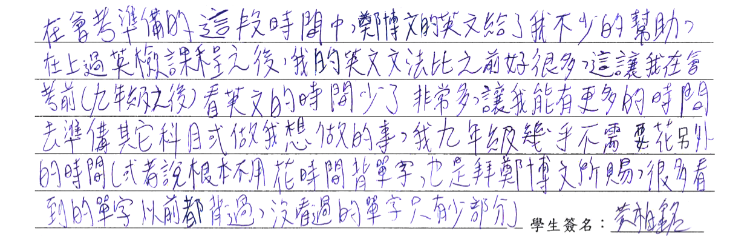 在會考準備的這段時間中,鄭博文的英文給了我不少的幫助,
在上過英檢課程之後,我的英文文法比之前好很多,這讓我在會
考前(九年級之後)看英文的時間少了非常多,讓我能有更多的時間
去準備其它科目或做我想做的事,我九年級幾乎不需要花另外
的時間(或者說根本不用花時間背單字,也是拜鄭博文所賜,很多看
到的單字以前都背過,沒看過的單字只有少部分)
學生簽名:黃柏銘